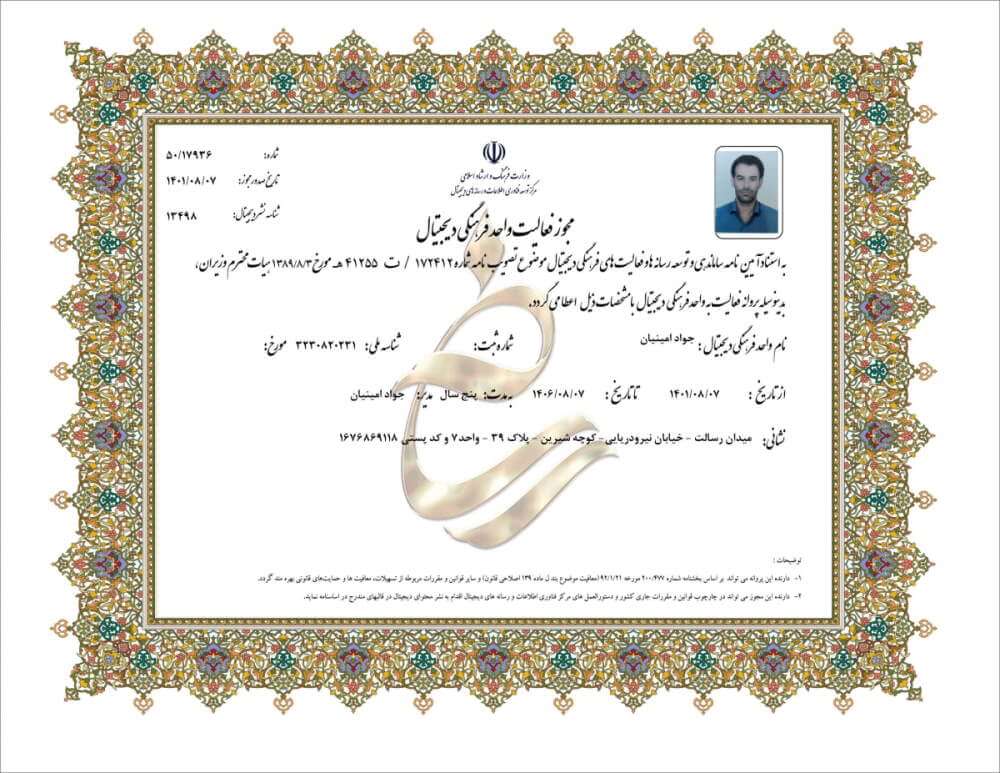 وزارت فرهنگ و ارشاد اسلامی
مرکز توسعه فناوری اطلاعات و رسانه های دیجیتال
شماره: ۵۰/۱۷۹۳۶
تاریخ صدور مجوز: ۱۴۰۱/۰۸/۰۷
شناسه نشر دیجیتال: ۱۳۴۹۸
مجوز فعالیت واحد فرهنگی دیجیتال
به استناد آیین نامه ساماندهی و توسعه رسانه ها و فعالیت های فرهنگی دیجیتال موضوع تصویب نامه شماره ۱۷۲۴۱۲ / ت ۴۱۲۵۵ هـ مورخ ۱۳۸۹/۸/۳ هیات محترم وزیران،
بدینوسیله پروانه فعالیت به واحد فرهنگی دیجیتال با مشخصات ذیل اعطا می گردد.
نام واحد فرهنگی دیجیتال: جواد امینیان شماره ثبت: شناسه ملی: ۳۲۳۰۸۲۰۲۳۱ مورخ:
از تاریخ: ۱۴۰۱/۰۸/۰۷ تا تاریخ: ۱۴۰۶/۰۸/۰۷ به مدت: پنج سال مدیر: جواد امینیان
نشانی: میدان رسالت - خیابان نیرودریایی- کوچه شیرین - پلاک ۳۹ - واحد۷ و کد پستی ۱۶۷۶۸۶۹۱۱۸
توضیحات :
۱- دارنده این پروانه می تواند بر اساس بخشنامه شماره ۲۰۰/۴۷۷ مورخه ۹۲/۱/۲۱ (معافیت موضوع بند ل ماده ۱۳۹ اصلاحی قانون) و سایر قوانین و مقررات مربوطه از تسهیلات، معافیت ها و حمایت‌های قانونی بهره مند گردد.
۲- دارنده این مجوز می تواند در چارچوب قوانین و مقررات جاری کشور و دستورالعمل های مرکز فناوری اطلاعات و رسانه های دیجیتال اقدام به نشر محتوای دیجیتال در قالبهای مندرج در اساسنامه نماید.